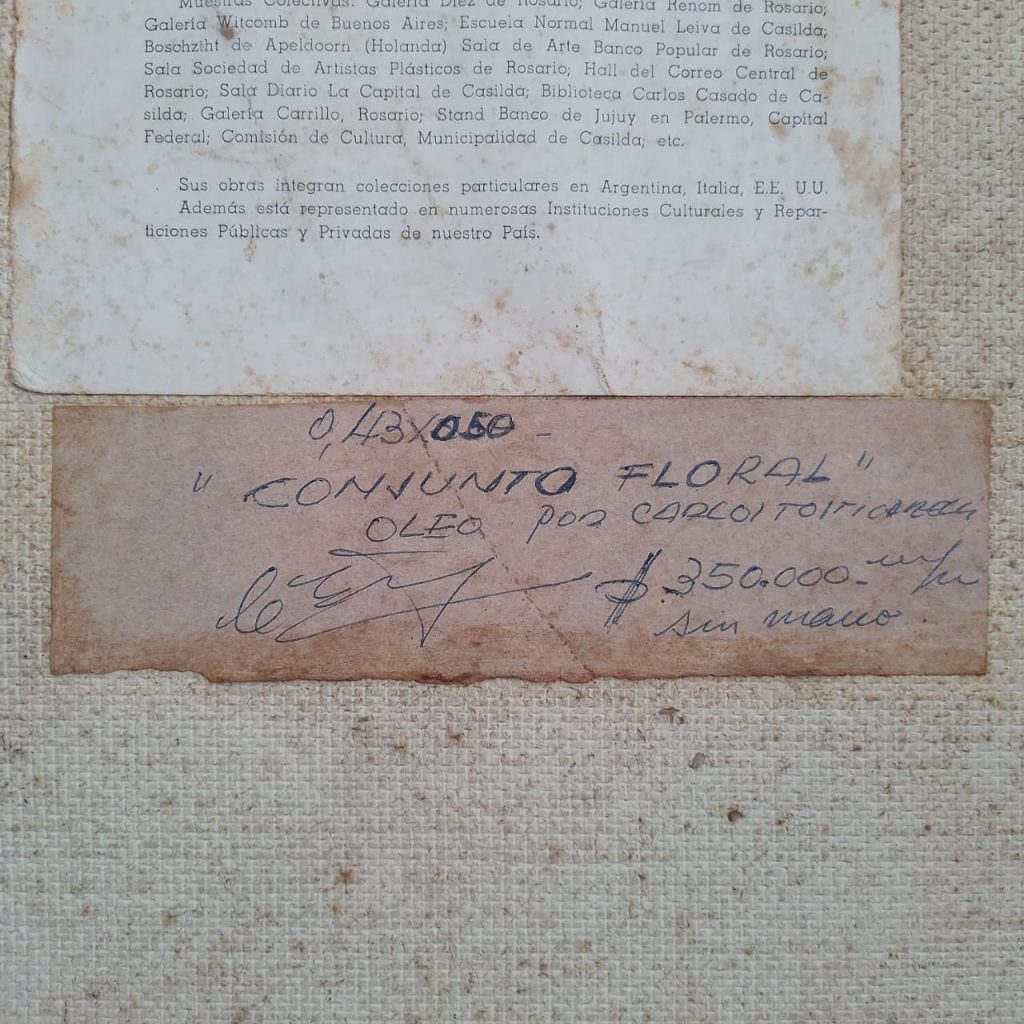 Muestras Colectivas: Galería Diez de Rosario; Galería Renom de Rosario;
Galería Witcomb de Buenos Aires; Escuela Normal Manuel Leiva de Casilda;
Boschztht de Apeldoorn (Holanda) Sala de Arte Banco Popular de Rosario;
Sala Sociedad de Artistas Plásticos de Rosario; Hall del Correo Central de
Rosario; Sala Diario La Capital de Casilda; Biblioteca Carlos Casado de Ca-
silda; Galería Carrillo, Rosario; Stand Banco de Jujuy en Palermo, Capital
Federal; Comisión de Cultura, Municipalidad de Casilda; etc.
Sus obras integran colecciones particulares en Argentina, Italia, E.E. U.U.
Además está representado en numerosas Instituciones Culturales y Repar-
ticiones Públicas y Privadas de nuestro País.
0,43x050-
"CONJUNTO FLORAL"
OLEO POR CARLOS
$ 350.000.-
sin marco.